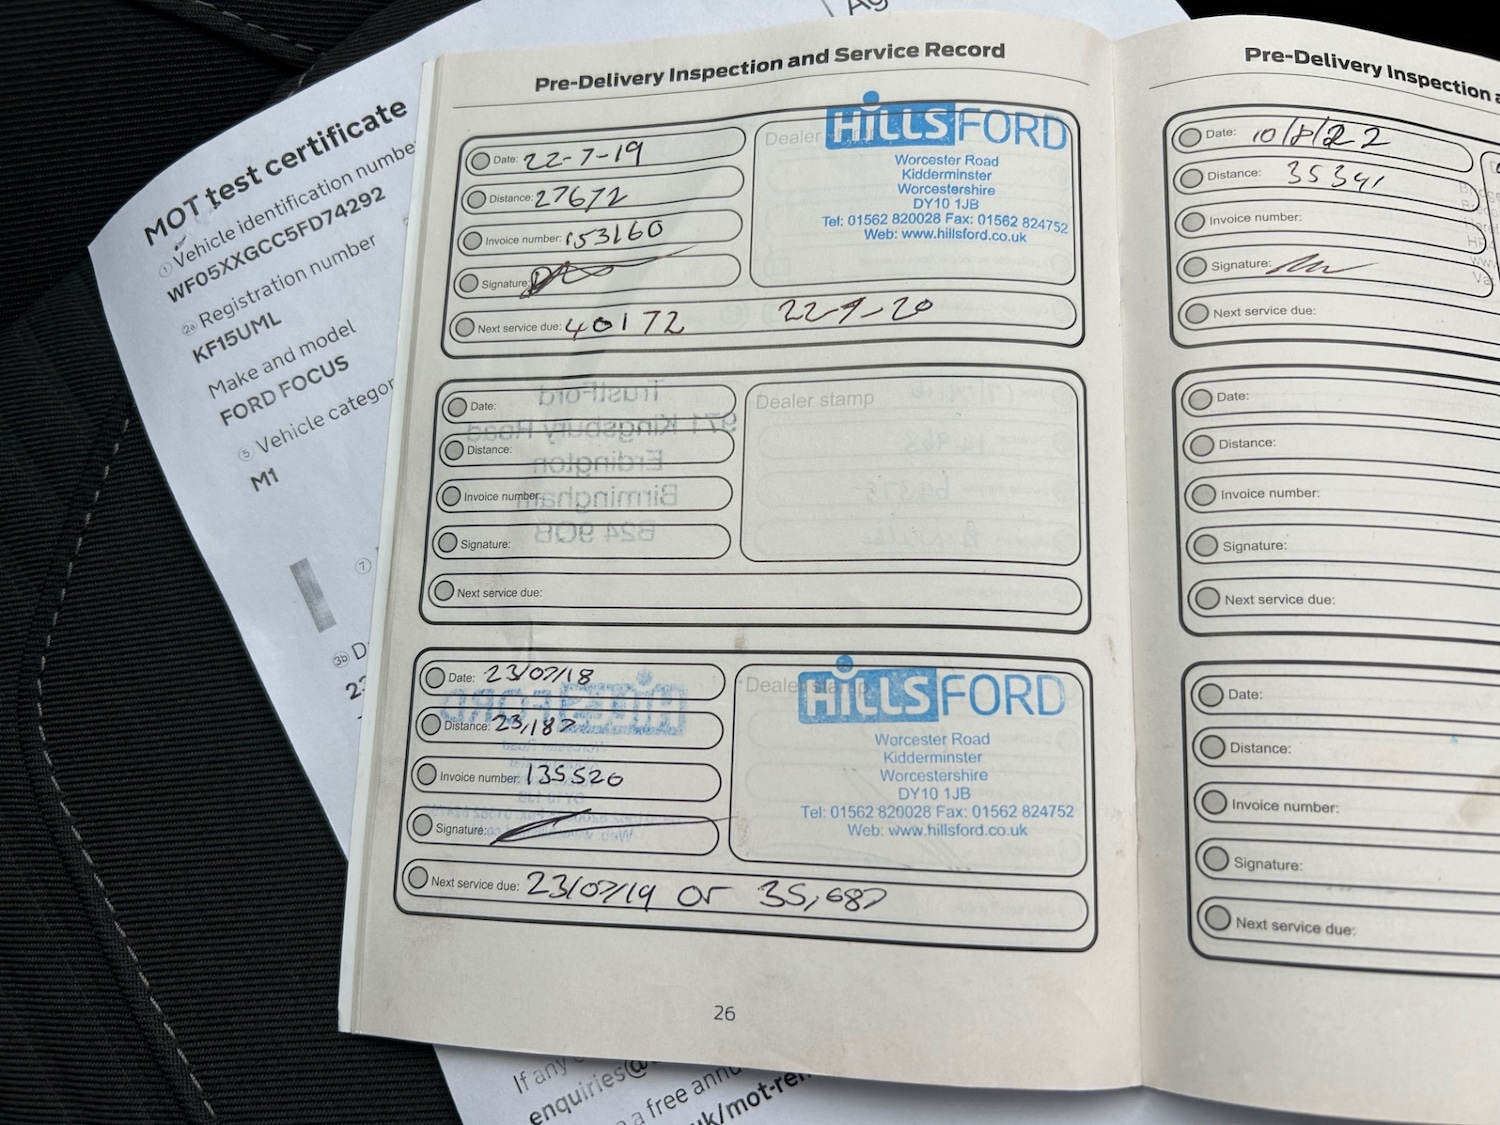 MOT test certificate
① Vehicle identification numbe
WF05XXGCC5FD74292
2a Registration number
KF15UML
Make and model
FORD FOCUS
⑤ Vehicle categor
M1
⑦
3b D
Pre-Delivery Inspection and Service Record
Date: 22-7-19
Distance: 27672
Invoice number: 153160
Signature:
Next service due: 40172 22-7-20
Dealer
HILLS FORD
Worcester Road
Kidderminster
Worcestershire
DY10 1JB
Tel: 01562 820028 Fax: 01562 824752
Web: www.hillsford.co.uk
Date:
Distance:
Invoice number:
Signature:
Next service due:
Dealer stamp
TrustFord
971 Kingsbury Road
Erdington
Birmingham
B24 9QB
Date: 23/07/18
Distance: 23,187
Invoice number: 135520
Signature:
Next service due: 23/07/19 or 35,687
Dealer stamp
HILLS FORD
Worcester Road
Kidderminster
Worcestershire
DY10 1JB
Tel: 01562 820028 Fax: 01562 824752
Web: www.hillsford.co.uk
26
Pre-Delivery Inspection
Date: 10/8/22
Distance: 35391
Invoice number:
Signature:
Next service due:
Date:
Distance:
Invoice number:
Signature:
Next service due:
Date:
Distance:
Invoice number:
Signature:
Next service due:
If any
enquiries@
a free annu
uk/mot-rem